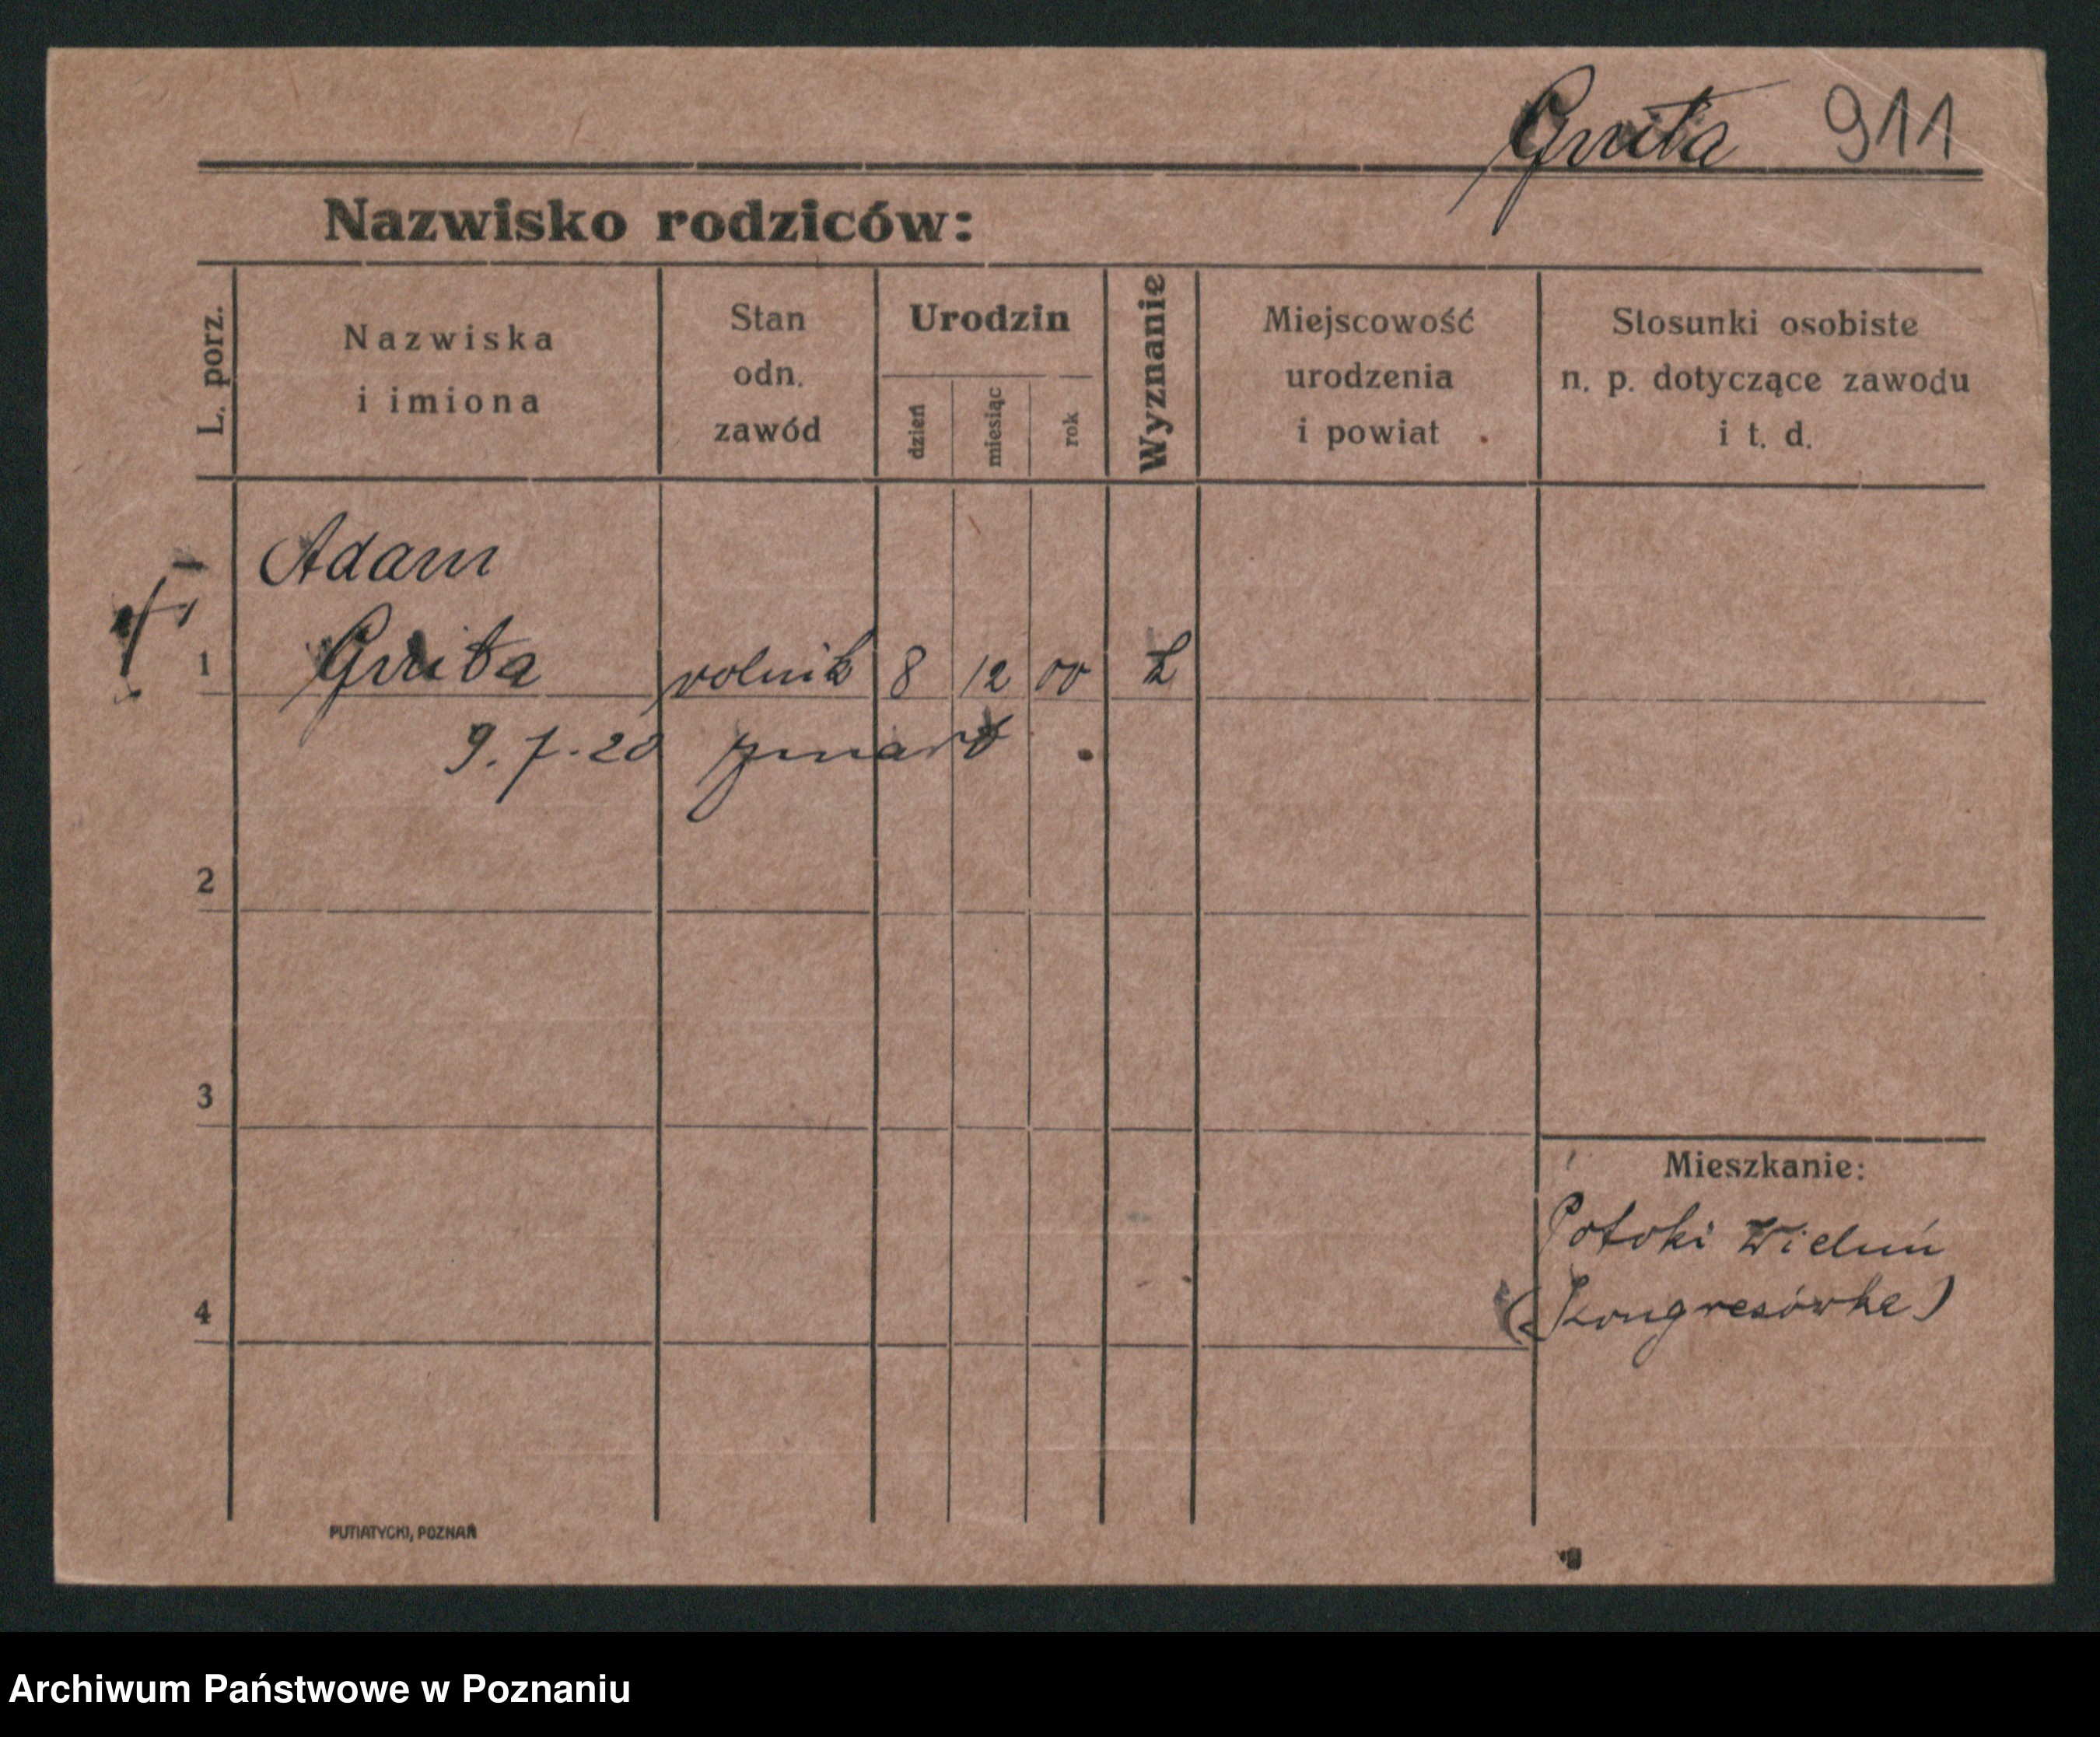 Gruita 911
Nazwisko rodziców:
L. porz.
Nazwiska
i imiona
Stan
odn.
zawód
Urodzin
dzień
miesiąc
rok
Wyznanie
Miejscowość
urodzenia
i powiat
Stosunki osobiste
n. p. dotyczące zawodu
i t. d.
Adam
1 Gruita rolnik 8 12 00
9.7.20 zmarł
2
3
Mieszkanie:
Potoki Wieluń
(Kongresówka)
4
PUTIATYCKI, POZNAŃ
Archiwum Państwowe w Poznaniu